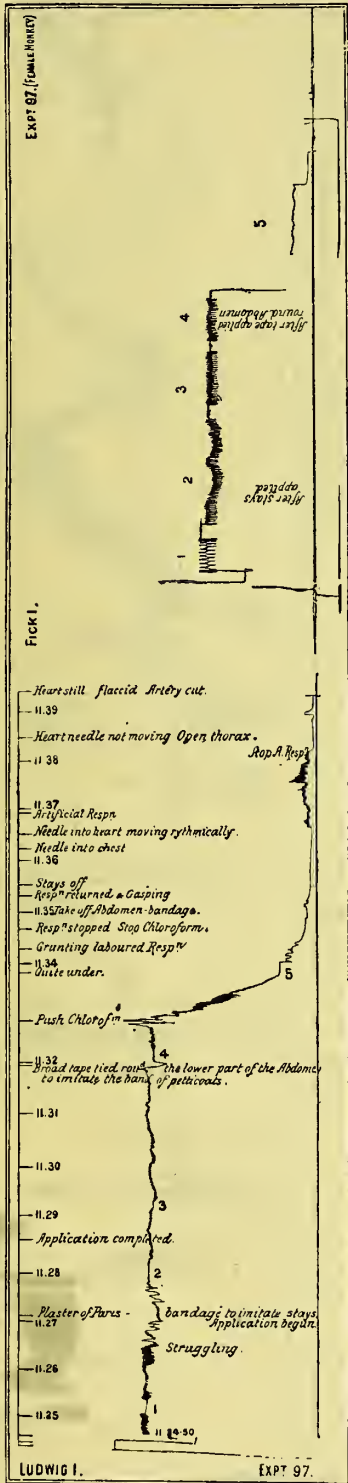 EXPT 97. (FEMALE MONKEY)
FICK I.
1
2
3
4
5
After stays
applied
After tape applied
round Abdomen
Heart still flaccid Artery cut.
11.39
Heart needle not moving Open thorax.
11.38
Stop A. Respn
11.37
Artificial Respn
Needle into heart moving rythmically.
Needle into chest
11.36
Stays off
Respn returned & Gasping
11.35 Take off Abdomen-bandage.
Respn stopped Stop Chloroform.
Grunting laboured Respn
11.34
Quite under.
5
Push Chlorofm
4
11.32
Broad tape tied round the lower part of the Abdomen
to imitate the band of petticoats.
11.31
11.30
3
11.29
Application completed.
11.28
2
Plaster of Paris - bandage to imitate stays
11.27
Application begun
Struggling.
11.26
1
11.25
11 24·50
LUDWIG I.
EXPT 97.